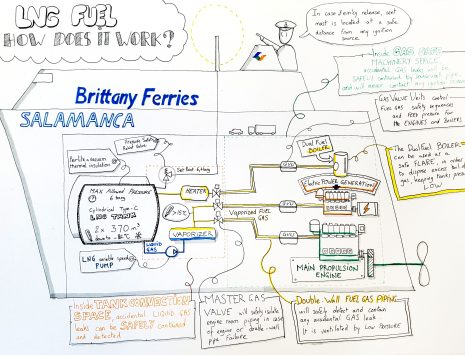 LNG FUEL
HOW DOES IT WORK?
In case of emerg. release, vent
mast is located at a safe
distance from any ignition
source.
Brittany Ferries
SALAMANCA
Inside GAS PIPE
MACHINERY SPACE
accidental GAS leak
SAFELY contained
and will never contact any ignition
GAS VALVE Units control
Fuel GAS safety sequences
and FEED pressure for
the ENGINES and BOILERS
The DualFuel BOILER
can be used as a
safe FLARE, in order
to dispose excess boil
gas, keeping tanks pressure
LOW
Dual Fuel
BOILER
Pressure Safety
Relief Valve
Perlite + vacuum
thermal insulation
Set Point
MAX Allowed Pressure
6 barg
Cylindrical Type-C
LNG TANK
2x 370 m³
down to
HEATER
GVU
Electric POWER GENERATION
GVU
Vaporized Fuel
GAS
VAPORIZER
LIQUID
GAS
GVU
LNG variable speed
PUMP
MAIN PROPULSION
ENGINE
Inside TANK CONNECTION
SPACE, accidental LIQUID GAS
leaks can be SAFELY contained
and detected
MASTER GAS
VALVE will safely isolate
engine room piping in case
of engine or double-wall
pipe Failure.
Double-Wall FUEL GAS PIPING
will safely detect and contain
any accidental GAS leak
It is ventilated by LOW PRESSURE